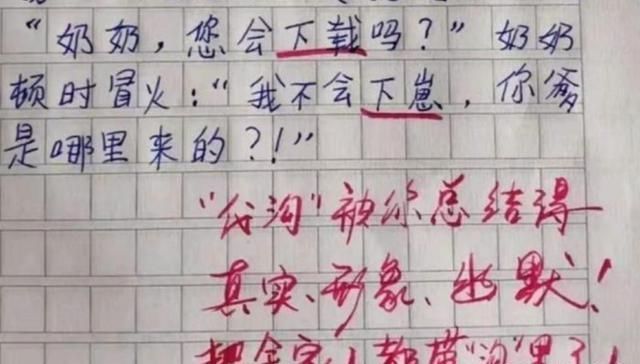 “奶奶，您会下载吗？”奶奶
顿时冒火：“我不会下崽，你爹
是哪里来的？！”
“代沟”被你总结得
真实、形象、幽默！
把全家人都带“沟”里了！